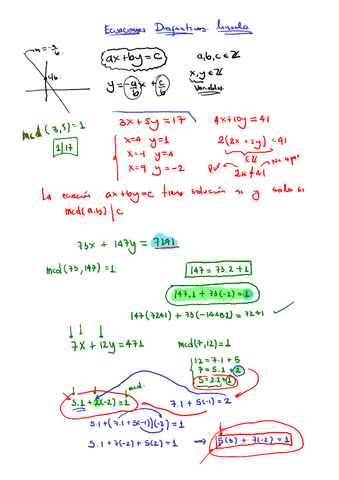 Ecuaciones Diofánticas. lineales
m = -a/b
c/b
ax+by=c
a,b,c ∈ ℤ
y = -a/b x + c/b
x,y ∈ ℤ
Variables
3x+5y=17
4x+10y=41
mcd(3,5)=1
1|17
x=4 y=1
x=-1 y=4
x=9 y=-2
2(2x+5y)=41
∈ℤ
2k≠41
La ecuación ax+by=c tiene solución si y solo si
mcd(a,b)|c
73x + 147y = 7241
mcd(73,147)=1
147 = 73·2+1
147·1 + 73(-2) = 1
147(7241) + 73(-14482) = 7241 ✓
7x+12y=471
mcd(7,12)=1
12=7·1+5
7=5·1+2
5=2·2+1
mcd
5·1+2(-2)=1
7·1+5(-1)=2
5·1+(7·1+5(-1))(-2)=1
5·1+7(-2)+5(2)=1 → 5(3)+7(-2)=1